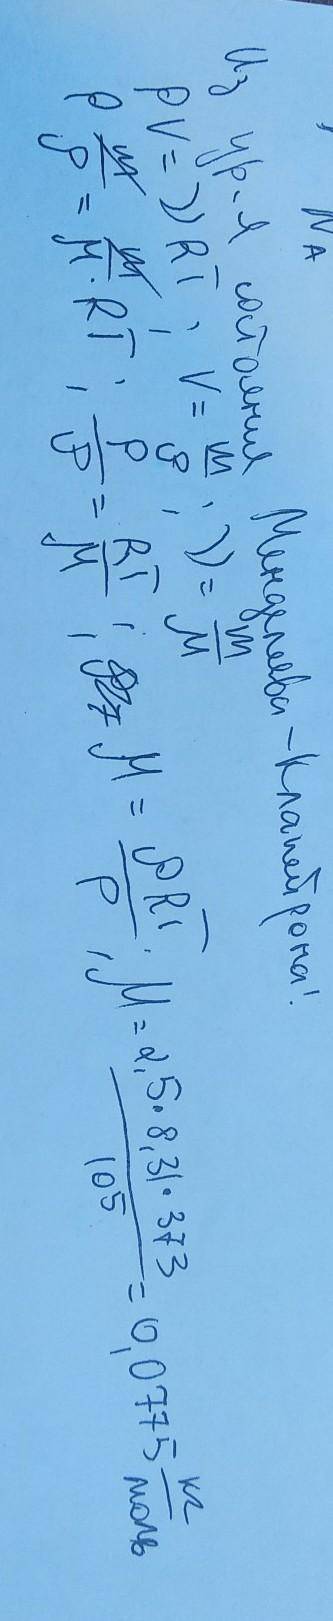 , N_A
Из ур-я состояния Менделеева-Клапейрона:
pV = νRT; V = m/ρ; ν = m/M
p m/ρ = m/M · RT; p/ρ = RT/M; M = ρRT/p; M = 2,5·8,31·373/10⁵ = 0,0775 кг/моль